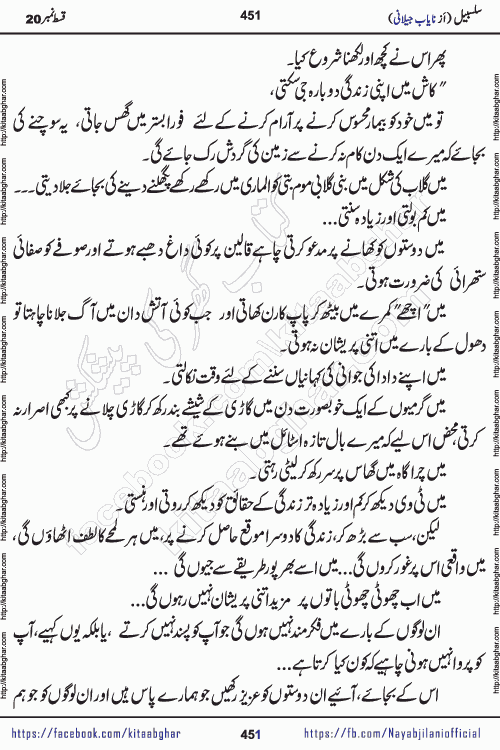 سلسبیل (از نایاب جیلانی) 451 قسط نمبر 20
پھر اس نے کچھ اور لکھنا شروع کیا۔
"کاش میں اپنی زندگی دوبارہ جی سکتی،
تو میں خود کو بیمار محسوس کرنے پر آرام کرنے کے لئے فوراً بستر میں گھس جاتی، یہ سوچنے کی
بجائے کہ میرے ایک دن کام نہ کرنے سے زمین کی گردش رک جائے گی۔
میں گلاب کی شکل میں بنی گلابی موم بتی کو الماری میں رکھے رکھے پگھلنے دینے کی بجائے جلا دیتی۔۔۔
میں کم بولتی اور زیادہ سنتی...
میں دوستوں کو کھانے پر مدعو کرتی چاہے قالین پر کوئی داغ دھبے ہوتے اور صوفے کو صفائی
ستھرائی کی ضرورت ہوتی۔
میں "اچھے" کمرے میں بیٹھ کر پاپ کارن کھاتی اور جب کوئی آتش دان میں آگ جلانا چاہتا تو
دھول کے بارے میں اتنی پریشان نہ ہوتی۔
میں اپنے دادا کی جوانی کی کہانیاں سننے کے لئے وقت نکالتی۔
میں گرمیوں کے ایک خوبصورت دن میں گاڑی کے شیشے بند رکھ کر گاڑی چلانے پر کبھی اصرار نہ
کرتی محض اس لیے کہ میرے بال تازہ اسٹائل میں بنے ہوئے تھے۔
میں چراگاہ میں گھاس پر سر رکھ کر لیٹی رہتی۔
میں ٹی وی دیکھ کر کم اور زیادہ تر زندگی کے حقائق کو دیکھ کر روتی اور ہنستی۔
لیکن، سب سے بڑھ کر، زندگی کا دوسرا موقع حاصل کرنے پر، میں ہر لمحے کا لطف اٹھاؤں گی،
میں واقعی اس پر غور کروں گی...میں اسے بھر پور طریقے سے جیوں گی ...
میں اب چھوٹی چھوٹی باتوں پر مزید اتنی پریشان نہیں رہوں گی۔
ان لوگوں کے بارے میں فکر مند نہیں ہوں گی جو آپ کو پسند نہیں کرتے ، یا بلکہ یوں کہیے، آپ
کو پروا نہیں ہونی چاہیے کہ کون کیا کرتا ہے...
اس کے بجائے، آئیے ان دوستوں کو عزیز رکھیں جو ہمارے پاس ہیں اور ان لوگوں کو جو ہم
https://facebook.com/kitaabghar 451 https://fb.com/Nayabjilaniofficial
http://kitaabghar.com